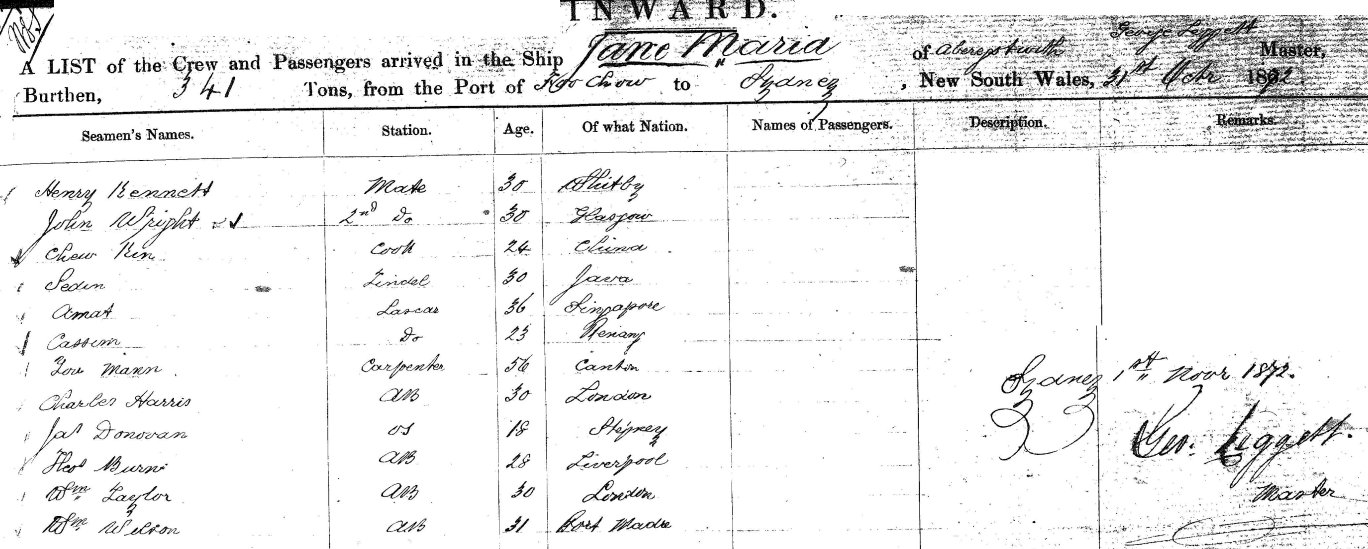 INWARD.
A LIST of the Crew and Passengers arrived in the Ship Jane Maria of Aberystwith George Leggett Master,
Burthen, 341 Tons, from the Port of Foo Chow to Sydney, New South Wales, 31st Octr 1872
Seamen's Names. Station. Age. Of what Nation. Names of Passengers. Description. Remarks.
Henry Kennett Mate 30 Whitby
John Wright 2nd Do 30 Glasgow
Chew Kin Cook 24 China
Sedin Tindel 30 Java
Amat Lascar 36 Singapore
Cassim Do 23 Penang
Mann Carpenter 56 Canton
Charles Harris AB 30 London
Jas Donovan OS 18 Stepney
Thos Burns AB 28 Liverpool
Wm Taylor AB 30 London
Wm Wilson AB 31 Port Madoc
Sydney 1st Novr 1872.
Geo. Leggett.
Master